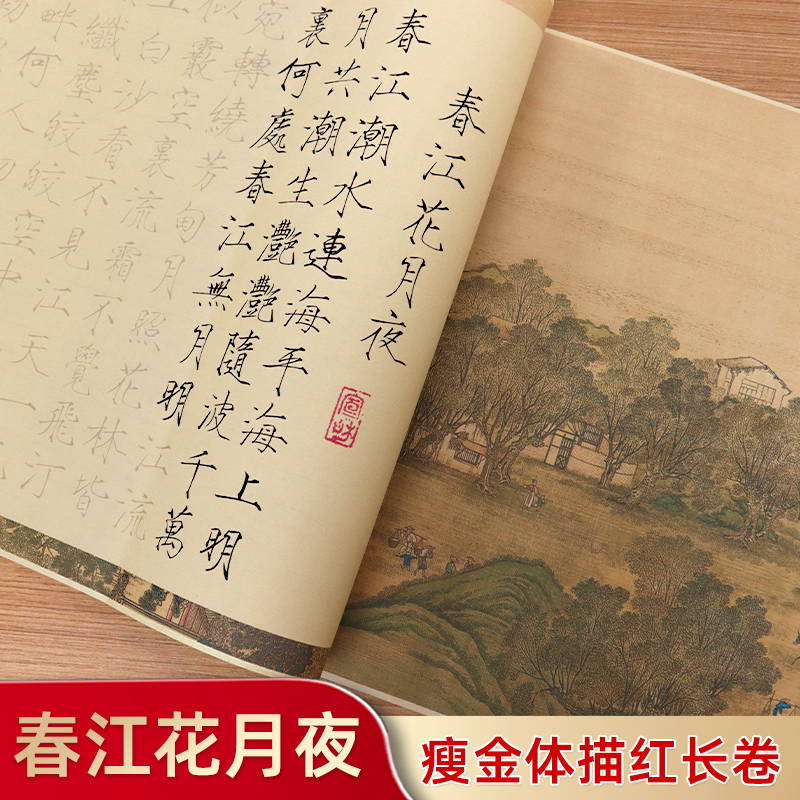 春江花月夜
春江潮水連海平海上明
月共潮生灩灩隨波千萬
裏何處春江無月明江流
宛轉繞芳甸月照花林皆
似霰空裏流霜不覺飛汀
上白沙看不見江天一
纖塵皎皎空中
畔何人初
春江花月夜
瘦金体描红长卷